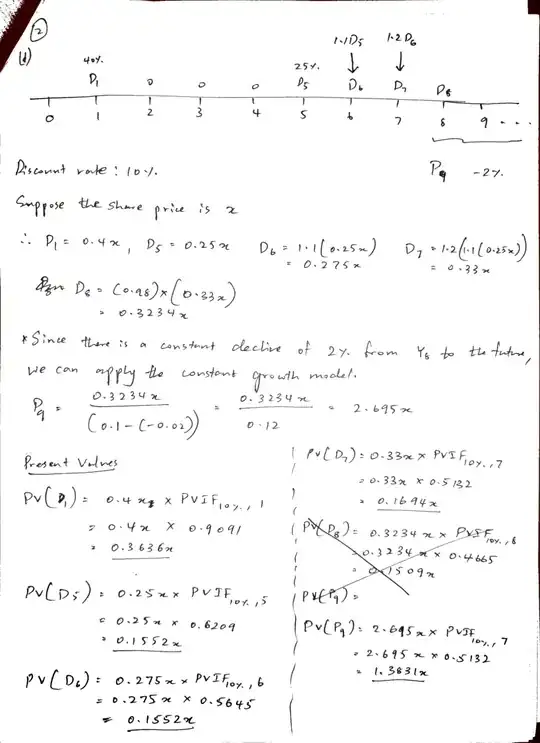 ②
(d)
1.1D5 1.2D6
40%. 25%.
D1 0 0 0 D5 D6 D7 D8
0 1 2 3 4 5 6 7 8 9 ...
Discount rate : 10%.
P9 -2%
Suppose the share price is x
∴ D1 = 0.4x, D5 = 0.25x D6 = 1.1(0.25x) D7 = 1.2(1.1(0.25x))
= 0.275x = 0.33x
D8 = (0.98) × (0.33x)
= 0.3234x
* Since there is a constant decline of 2% from Y8 to the future,
we can apply the constant growth model.
P9 = 0.3234x / (0.1-(-0.02)) = 0.3234x / 0.12 = 2.695x
Present Values
PV(D1) = 0.4x × PVIF10%, 1
= 0.4x × 0.9091
= 0.3636x
PV(D5) = 0.25x × PVIF10%, 5
= 0.25x × 0.6209
= 0.1552x
PV(D6) = 0.275x × PVIF10%, 6
= 0.275x × 0.5645
= 0.1552x
PV(D7) = 0.33x × PVIF10%, 7
= 0.33x × 0.5132
= 0.1694x
PV(D8) = 0.3234x × PVIF10%, 8
= 0.3234x × 0.4665
= 0.1509x
PV(P9) =
PV(P9) = 2.695x × PVIF10%, 7
= 2.695x × 0.5132
= 1.3831x